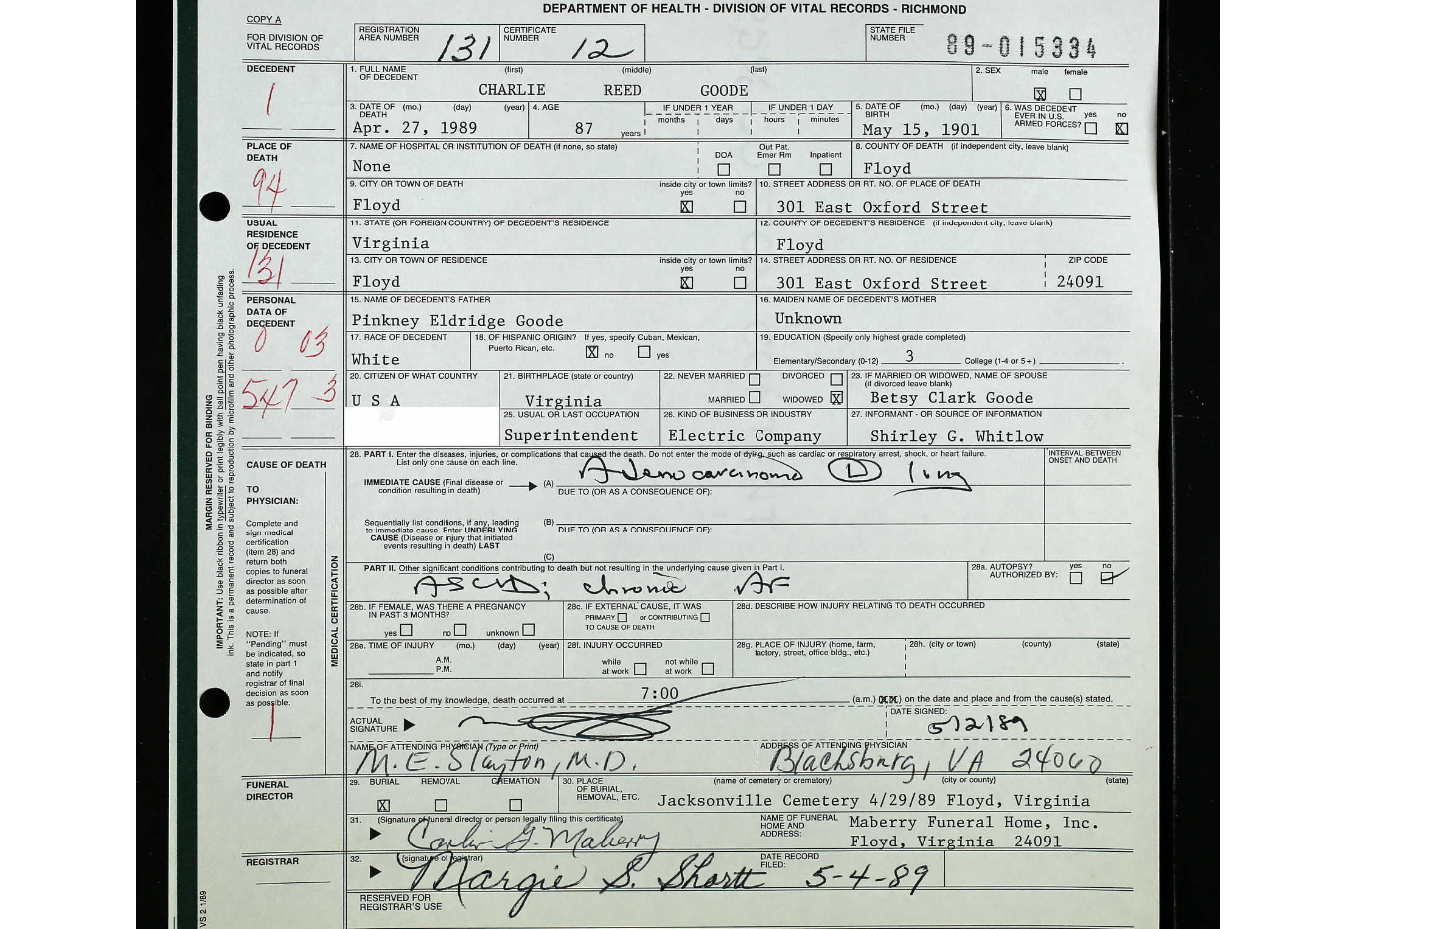 DEPARTMENT OF HEALTH - DIVISION OF VITAL RECORDS - RICHMOND
COPY A
FOR DIVISION OF VITAL RECORDS
REGISTRATION AREA NUMBER 131
CERTIFICATE NUMBER 12
STATE FILE NUMBER 89-015334
DECEDENT
1
1. FULL NAME OF DECEDENT (first) (middle) (last)
CHARLIE REED GOODE
2. SEX male female
X
3. DATE OF DEATH (mo.) (day) (year)
Apr. 27, 1989
4. AGE
87 years
IF UNDER 1 YEAR
months days
IF UNDER 1 DAY
hours minutes
5. DATE OF BIRTH (mo.) (day) (year)
May 15, 1901
6. WAS DECEDENT EVER IN U.S. ARMED FORCES? yes no
X
PLACE OF DEATH
94
7. NAME OF HOSPITAL OR INSTITUTION OF DEATH (if none, so state)
None
DOA Out Pat. Emer Rm Inpatient
8. COUNTY OF DEATH (if independent city, leave blank)
Floyd
9. CITY OR TOWN OF DEATH
Floyd
inside city or town limits? yes no
X
10. STREET ADDRESS OR RT. NO. OF PLACE OF DEATH
301 East Oxford Street
USUAL RESIDENCE OF DECEDENT
131
11. STATE (OR FOREIGN COUNTRY) OF DECEDENT'S RESIDENCE
Virginia
12. COUNTY OF DECEDENT'S RESIDENCE (if independent city, leave blank)
Floyd
13. CITY OR TOWN OF RESIDENCE
Floyd
inside city or town limits? yes no
X
14. STREET ADDRESS OR RT. NO. OF RESIDENCE
301 East Oxford Street
ZIP CODE
24091
PERSONAL DATA OF DECEDENT
0 03
547 3
15. NAME OF DECEDENT'S FATHER
Pinkney Eldridge Goode
16. MAIDEN NAME OF DECEDENT'S MOTHER
Unknown
17. RACE OF DECEDENT
White
18. OF HISPANIC ORIGIN? If yes, specify Cuban, Mexican, Puerto Rican, etc.
X no yes
19. EDUCATION (Specify only highest grade completed)
Elementary/Secondary (0-12) 3 College (1-4 or 5+)
20. CITIZEN OF WHAT COUNTRY
U S A
21. BIRTHPLACE (state or country)
Virginia
22. NEVER MARRIED DIVORCED
MARRIED WIDOWED X
23. IF MARRIED OR WIDOWED, NAME OF SPOUSE (if divorced leave blank)
Betsy Clark Goode
25. USUAL OR LAST OCCUPATION
Superintendent
26. KIND OF BUSINESS OR INDUSTRY
Electric Company
27. INFORMANT - OR SOURCE OF INFORMATION
Shirley G. Whitlow
CAUSE OF DEATH
TO PHYSICIAN:
Complete and
sign medical
certification
(item 28) and
return both
copies to funeral
director as soon
as possible after
determination of
cause.
NOTE: If
"Pending" must
be indicated, so
state in part 1
and notify
registrar of final
decision as soon
as possible.
1
MEDICAL CERTIFICATION
28. PART I. Enter the diseases, injuries, or complications that caused the death. Do not enter the mode of dying, such as cardiac or respiratory arrest, shock, or heart failure.
List only one cause on each line.
INTERVAL BETWEEN ONSET AND DEATH
IMMEDIATE CAUSE (Final disease or condition resulting in death)
(A) Adenocarcinoma lung
DUE TO (OR AS A CONSEQUENCE OF):
Sequentially list conditions, if any, leading to immediate cause. Enter UNDERLYING CAUSE (Disease or injury that initiated events resulting in death) LAST
(B)
DUE TO (OR AS A CONSEQUENCE OF):
(C)
PART II. Other significant conditions contributing to death but not resulting in the underlying cause given in Part I.
ASCVD; chronic AF
28a. AUTOPSY? AUTHORIZED BY: yes no
28b. IF FEMALE, WAS THERE A PREGNANCY IN PAST 3 MONTHS?
yes no unknown
28c. IF EXTERNAL CAUSE, IT WAS
PRIMARY or CONTRIBUTING
TO CAUSE OF DEATH
28d. DESCRIBE HOW INJURY RELATING TO DEATH OCCURRED
28e. TIME OF INJURY (mo.) (day) (year)
A.M.
P.M.
28f. INJURY OCCURRED
while at work not while at work
28g. PLACE OF INJURY (home, farm, factory, street, office bldg., etc.)
28h. (city or town) (county) (state)
28i.
To the best of my knowledge, death occurred at 7:00 (a.m.) on the date and place and from the cause(s) stated.
ACTUAL SIGNATURE
DATE SIGNED:
5/2/89
NAME OF ATTENDING PHYSICIAN (Type or Print)
M.E. Slayton, M.D.
ADDRESS OF ATTENDING PHYSICIAN
Blacksburg, VA 24060
FUNERAL DIRECTOR
29. BURIAL REMOVAL CREMATION
X
30. PLACE OF BURIAL, REMOVAL, ETC. (name of cemetery or crematory) (city or county) (state)
Jacksonville Cemetery 4/29/89 Floyd, Virginia
31. (Signature of funeral director or person legally filing this certificate)
G. Maberry
NAME OF FUNERAL HOME AND ADDRESS:
Maberry Funeral Home, Inc.
Floyd, Virginia 24091
REGISTRAR
32. (signature of registrar)
Margie S. Shortt
DATE RECORD FILED:
5-4-89
RESERVED FOR REGISTRAR'S USE
MARGIN RESERVED FOR BINDING
IMPORTANT: Use black ribbon in typewriter or print legibly with ball point pen having black unfading
ink. This is a permanent record and subject to reproduction by microfilm and other photographic process.
VS 2 1/89